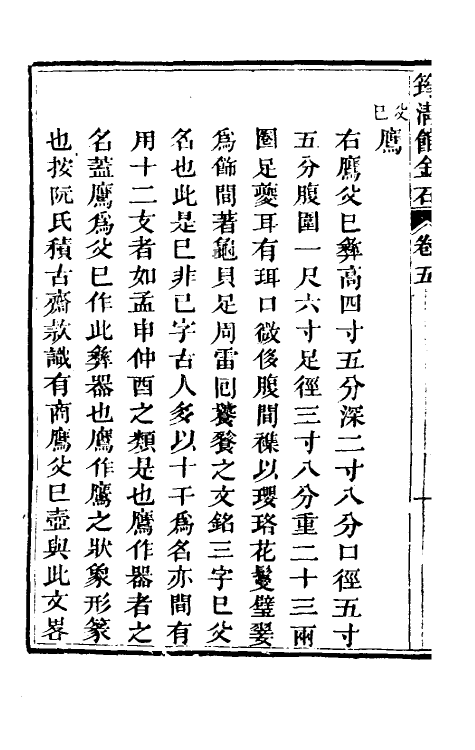 筠清館金石 卷五 十
父巳鷹
右鷹父巳彝高四寸五分深二寸八分口徑五寸
五分腹圍一尺六寸足徑三寸八分重二十三兩
圈足夔耳有珥口微侈腹間襍以瓔珞花鬘璧翣
爲飾間著龜貝足周雷囘饕餮之文銘三字巳父
名也此是巳非己字古人多以十干爲名亦間有
用十二支者如孟申仲酉之類是也鷹作器者之
名蓋鷹爲父巳作此彝器也鷹作鷹之狀象形篆
也按阮氏積古齋款識有商鷹父巳壺與此文畧